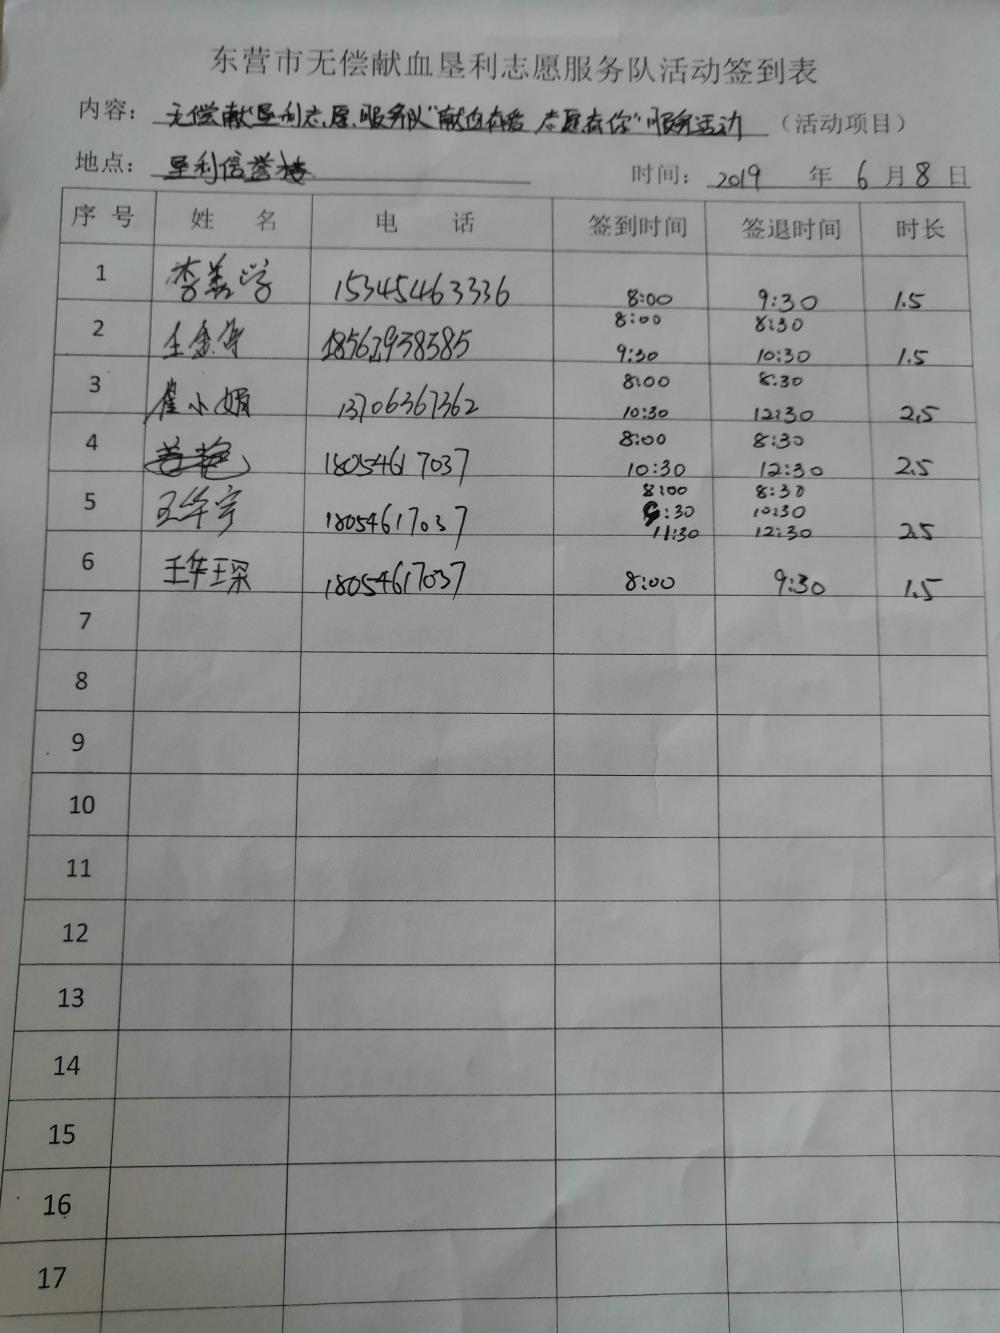 东营市无偿献血垦利志愿服务队活动签到表
内容：无偿献血垦利志愿服务队"献血有爱 志愿有你"服务活动（活动项目）
地点：垦利信誉楼 时间：2019 年 6 月 8 日
序号 姓名 电话 签到时间 签退时间 时长
1 李美学 15345463336 8:00 9:30 1.5
2 18562938385 8:00 8:30
9:30 10:30 1.5
3 崔小娟 13706367362 8:00 8:30
10:30 12:30 2.5
4 18054617037 8:00 8:30
10:30 12:30 2.5
5 王华宇 18054617037 8:00 8:30
9:30 10:30
11:30 12:30 2.5
6 王华琛 18054617037 8:00 9:30 1.5
7
8
9
10
11
12
13
14
15
16
17